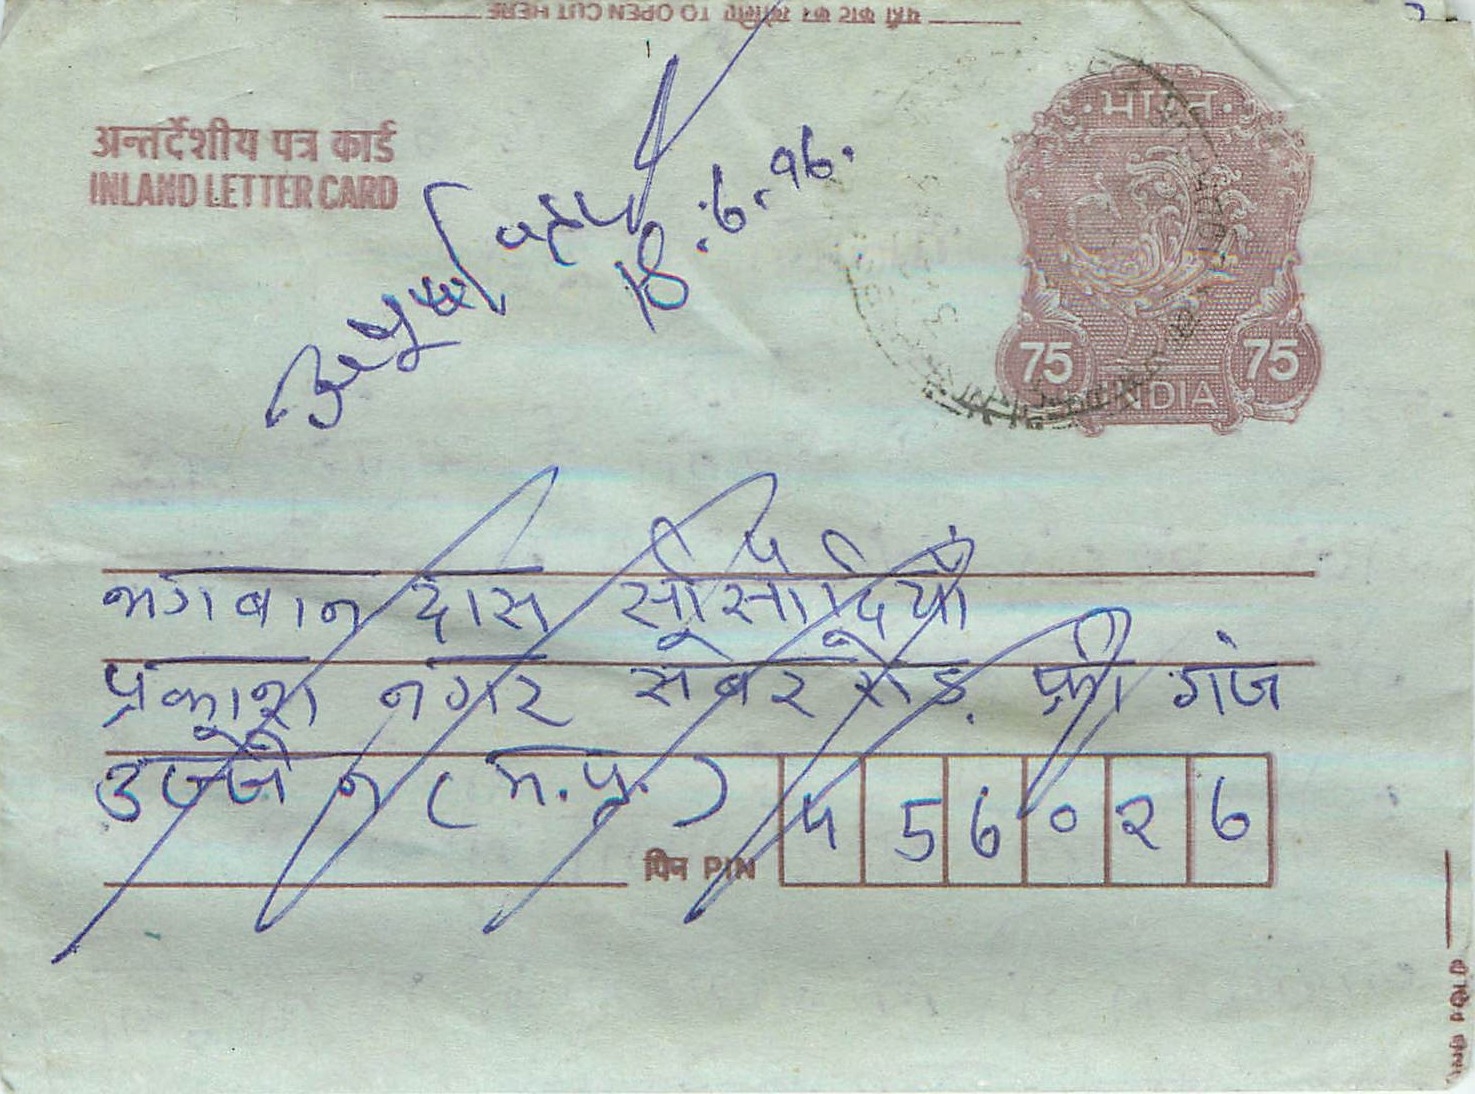 यहाँ काट कर खोलिए TO OPEN CUT HERE
अन्तर्देशीय पत्र कार्ड
INLAND LETTER CARD
भारत
75 75
INDIA
18.6.96.
भगवान दास सीसोदिया
प्रकाश नगर सांवेर रोड. फ्री गंज
उज्जैन (म.प्र.)
पिन PIN ५ 5 6 ० २ 6